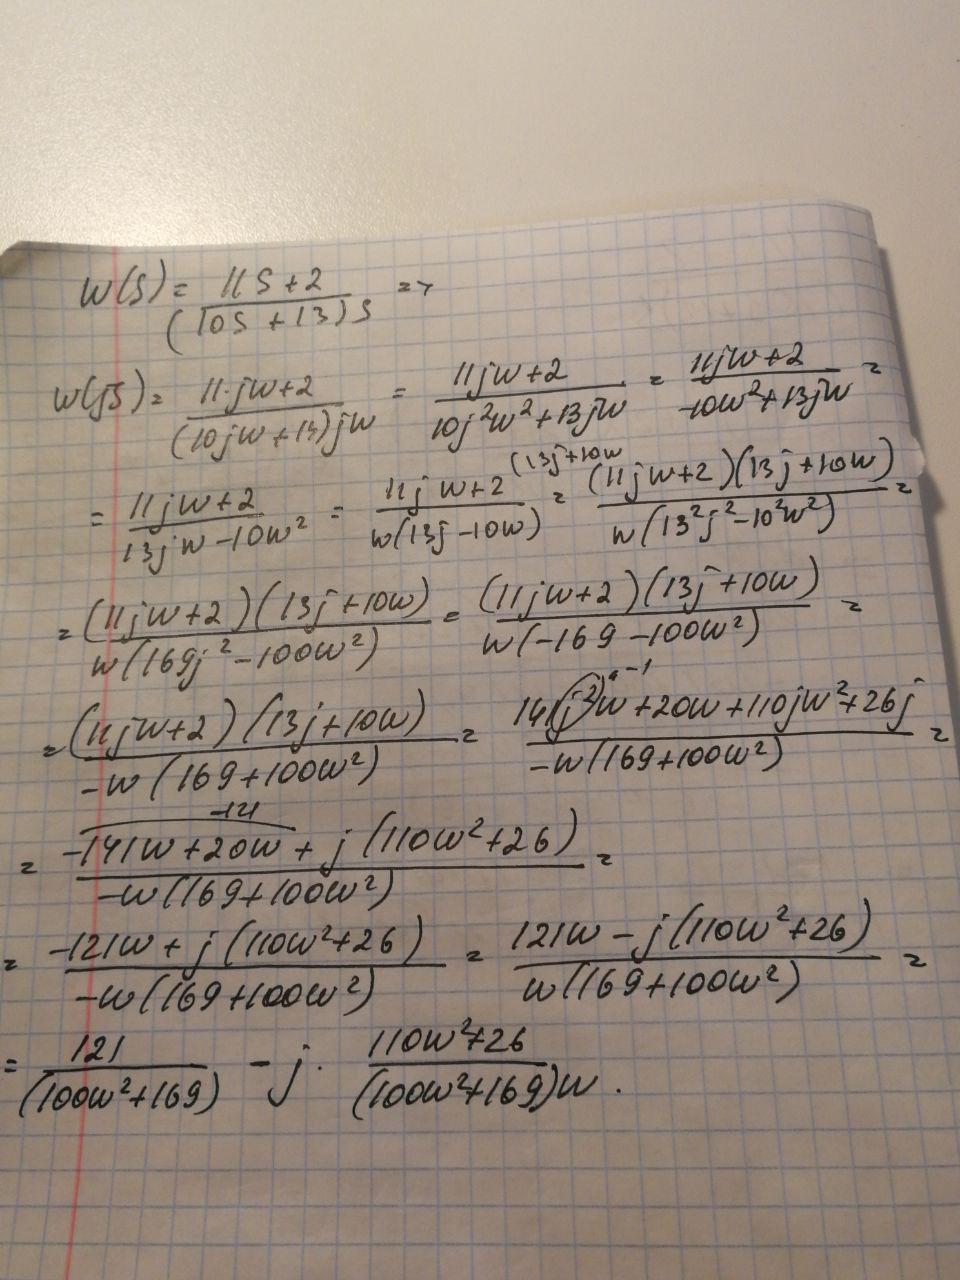 W(S) = (11S+2)/((10S+13)S) =>
W(jS) = (11·jw+2)/((10jw+13)jw) = (11jw+2)/(10j²w²+13jw) = (11jw+2)/(-10w²+13jw) =
= (11jw+2)/(13jw-10w²) = (11jw+2)/(w(13j-10w)) (13j+10w = ((11jw+2)(13j+10w))/(w(13²j²-10²w²)) =
= ((11jw+2)(13j+10w))/(w(169j²-100w²)) = ((11jw+2)(13j+10w))/(w(-169-100w²)) =
= ((11jw+2)(13j+10w))/(-w(169+100w²)) = (141(j²)w+20w+110jw²+26j)/(-w(169+100w²)) =
= (-141w+20w+j(110w²+26))/(-w(169+100w²)) =
= (-121w+j(110w²+26))/(-w(169+100w²)) = (121w-j(110w²+26))/(w(169+100w²)) =
= 121/(100w²+169) - j· (110w²+26)/((100w²+169)w).